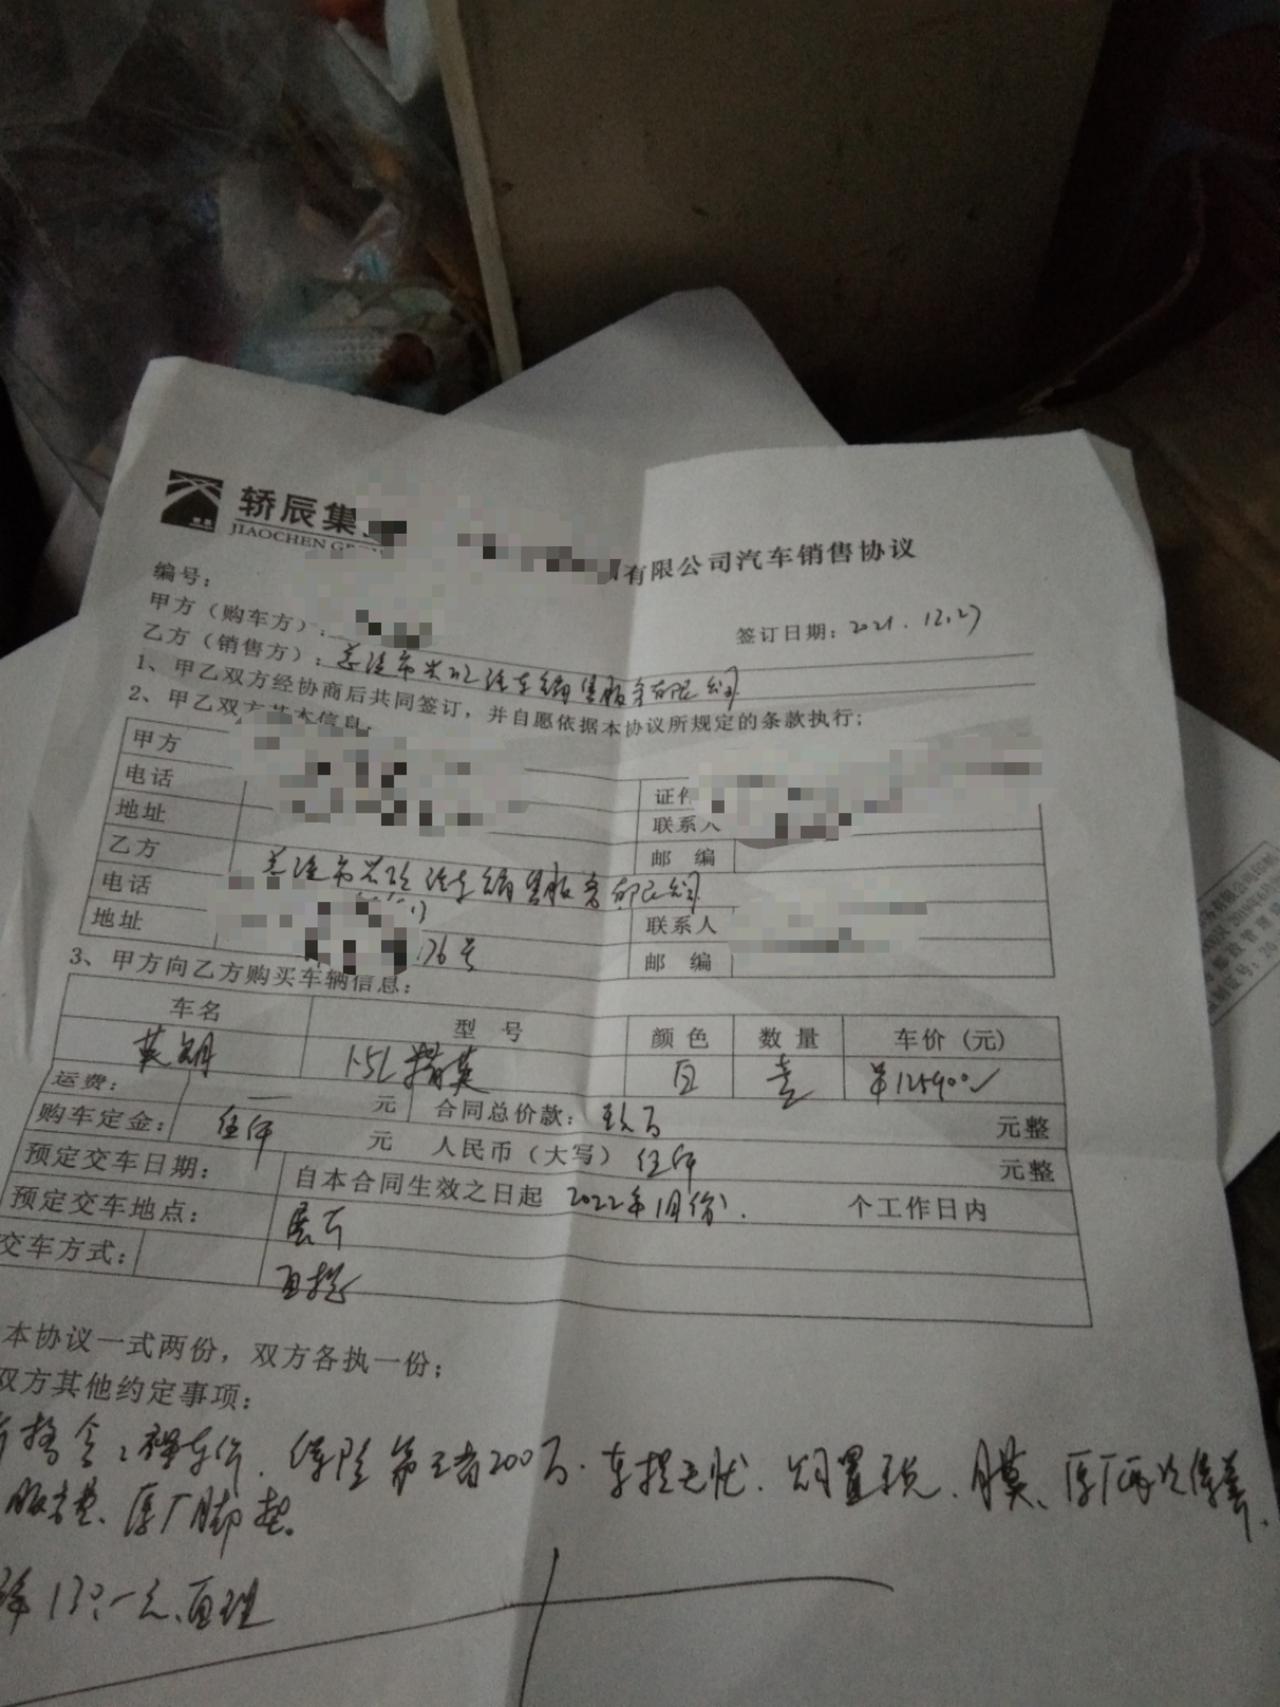 轿辰集
JIAOCHEN GR
有限公司汽车销售协议
编号：
甲方（购车方）：
签订日期：2021.12.27
乙方（销售方）：市汽车销售服务有限公司
1、甲乙双方经协商后共同签订，并自愿依据本协议所规定的条款执行；
2、甲乙双方基本信息
甲方 证件
电话 联系人
地址 邮 编
乙方 市汽车销售服务有限公司
电话 联系人
地址 176号 邮 编
3、甲方向乙方购买车辆信息：
车名 型 号 颜色 数量 车价（元）
英朗 1.5L精英 白 壹 ¥125900
运费： — 元 合同总价款： 元整
购车定金：伍仟 元 人民币（大写）伍仟 元整
预定交车日期： 自本合同生效之日起 2022年1月份. 个工作日内
预定交车地点：展厅
交车方式： 自提
本协议一式两份，双方各执一份；
双方其他约定事项：
含：裸车价、保险第三者200万、车损无忧、购置税、膜、原厂两次保养、
服务费、原厂脚垫。